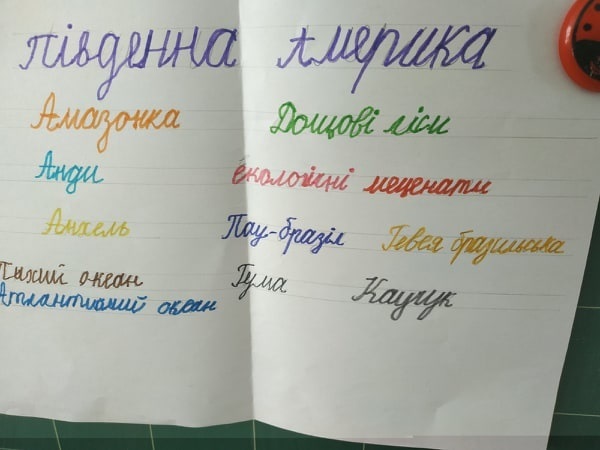 Південна Америка
Амазонка Дощові ліси
Анди екологічні меценати
Анхель Пау-бразіл Гевея бразильська
Тихий океан Гума Каучук
Атлантичний океан